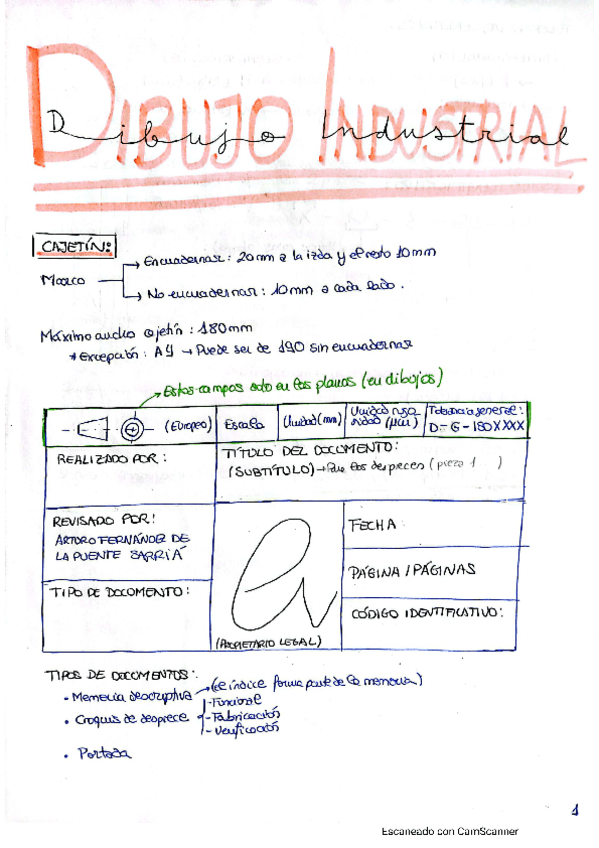 DIBUJO INDUSTRIAL
Dibujo Industrial
CAJETÍN:
Marco
Encuadernar: 20mm a la izda y el resto 10mm
No encuadernar: 10mm a cada lado.
Máximo ancho cajetín: 180mm
* Excepción: A4 → Puede ser de 190 sin encuadernar
→ Estos campos solo en los planos (en dibujos)
(Europeo)
Escala
Unidad (mm)
Unidad rugosidad (μm)
Tolerancia general:
D-G-ISOXXXX
REALIZADO POR:
TÍTULO DEL DOCUMENTO:
(SUBTÍTULO) → Para los despieces (pieza 1 )
REVISADO POR:
ARTURO FERNÁNDEZ DE
LA PUENTE SARRIÁ
FECHA
TIPO DE DOCUMENTO:
PÁGINA / PÁGINAS
CÓDIGO IDENTIFICATIVO:
(PROPIETARIO LEGAL)
TIPOS DE DOCUMENTOS:
• Memoria descriptiva → (el índice forma parte de la memoria)
• Croquis de despiece
- Funcional
- Fabricación
- Verificación
• Portada
1
Escaneado con CamScanner